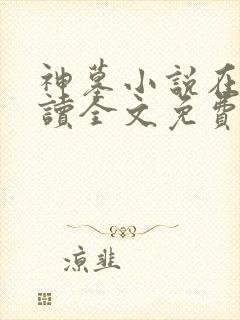 神墓小說在
讀全文免費
涼韭